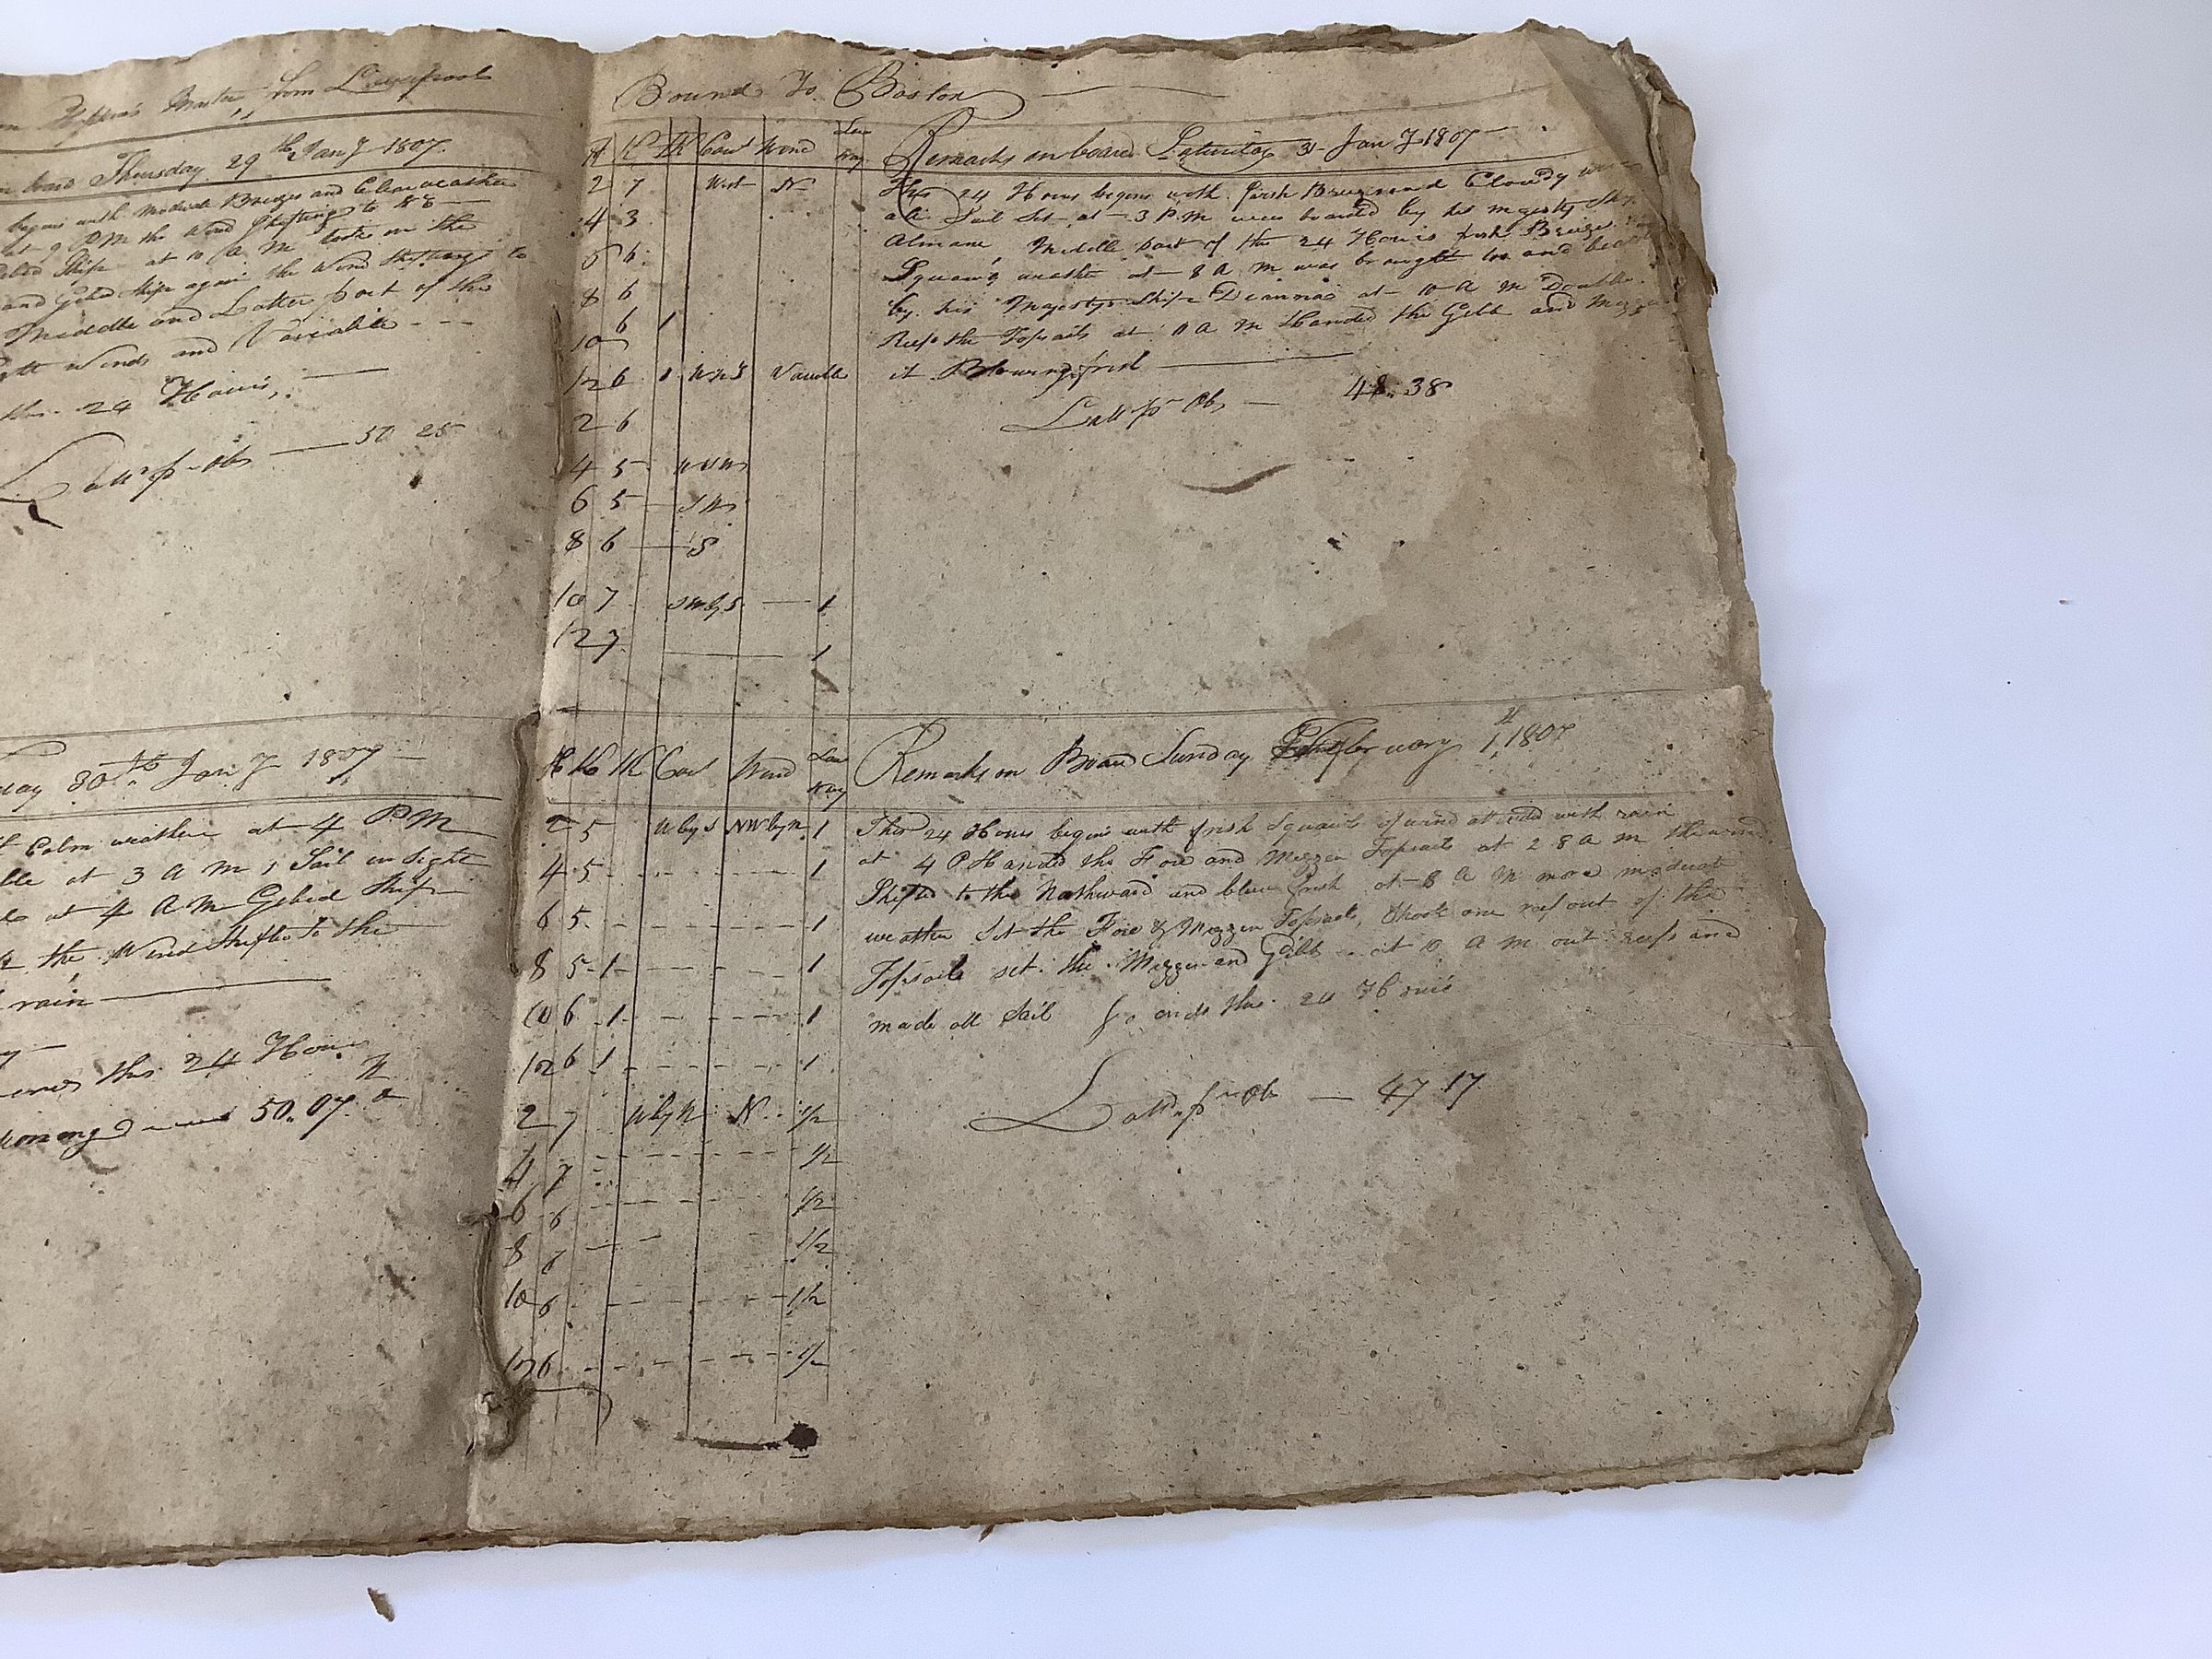 Master, from Liverpool
board Thursday 29th Jany 1807.
begins with Moderate Breezes and Clear weather
at 9 PM the Wind Shifting to
Ship at 10 A M took in the
and Gibed Ship again the Wind Shifting to
Middle and Latter part of the
Winds and Variable
this 24 Hours,
Latt pr Obs — 50 25
30th Jany 1807
Calm weather at 4 PM
at 3 A M 1 Sail in Sight
at 4 A M Gibed Ship
the Wind Shifted to the
rain
ends this 24 Hours
50.07
Bound To Boston
H K HK Cours Wind Lee Way Remarks on board Saturday 31 Jany 1807
2 7 West N This 24 Hours begins with fresh Breezes and Cloudy
4 3 all Sail Set at 3 P.M were boarded by his majestys Ship
6 6 Middle part of this 24 Hours fresh Breezes
Squawly weather at 8 A M was brought too and
8 6 by his Majestys Ship Dianna at 10 A M Double
10 6 1 Reefd the Topsails at 11 A M Handed the Gibb and
12 6 1 WNS Variable it Blowing fresh
2 6 Latt pr Obs — 48.38
4 5 WSW
6 5 SW
8 6 S
10 7 SWbyS — 1
12 7 1
H K HK Cours Wind Lee Way Remarks on Board Sunday February 1, 1807
2 5 WbyS NWbyN 1 This 24 Hours begins with fresh Squails of wind attended with rain
4 5 1 at 4 P Handed the Fore and Mizzen Topsails at 2 8 A M the wind
Shifted to the Northward and blew fresh at 8 A M more moderate
6 5 1 weather Set the Fore & Mizzen Topsails, Shook one reef out of the
8 5 1 1 Topsails set the Mizzen and Gibb at 10 A M out reefs and
10 6 1 1 made all Sail So ends this 24 Hours
12 6 1 1
2 7 WbyN N 1/2 Latt pr Ob — 47 17
4 7 1/2
6 6 1/2
8 7 1/2
10 6 1/2
12 6 1/2